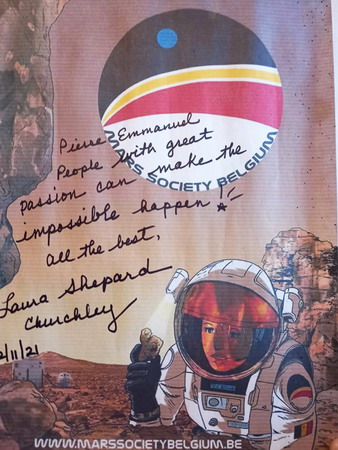 Pierre Emmanuel
People with great
passion can make the
impossible happen!
all the best,
Laura Shepard
Churchley
2/11/21
MARS SOCIETY BELGIUM
WWW.MARSSOCIETYBELGIUM.BE